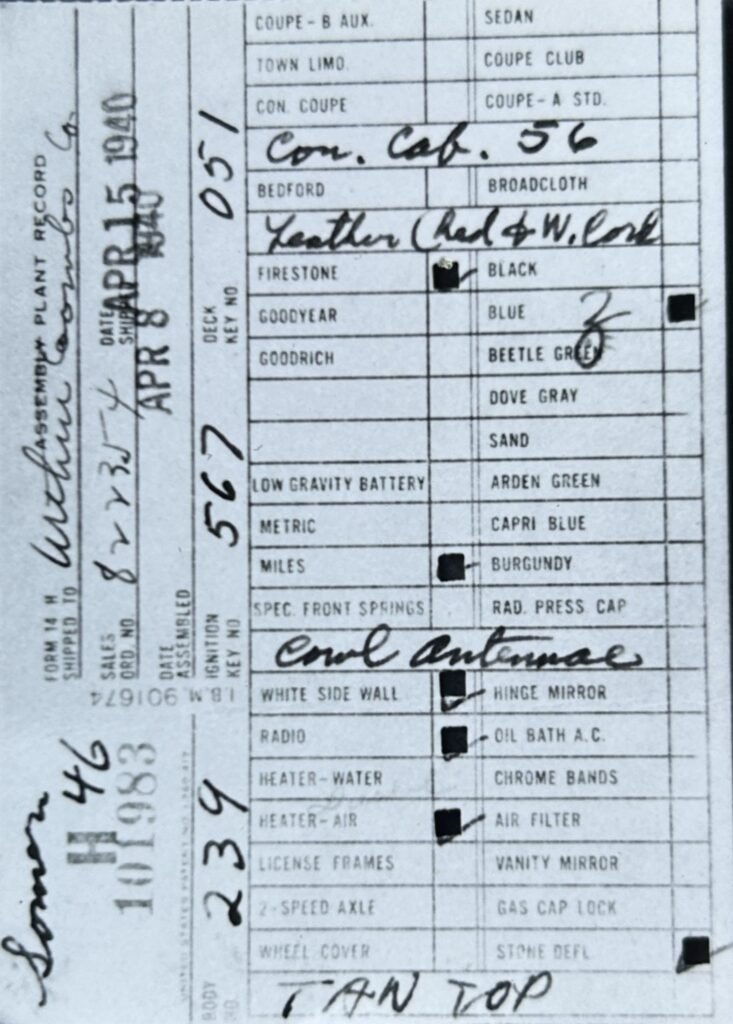 COUPE - B AUX. SEDAN
TOWN LIMO. COUPE CLUB
CON. COUPE COUPE - A STD.
Con. Cab. 56
BEDFORD BROADCLOTH
Leather (Red & W. Cord
FIRESTONE BLACK
GOODYEAR BLUE 2
GOODRICH BEETLE GREEN
DOVE GRAY
SAND
LOW GRAVITY BATTERY ARDEN GREEN
METRIC CAPRI BLUE
MILES BURGUNDY
SPEC. FRONT SPRINGS RAD. PRESS CAP
Cowl Antennae
WHITE SIDE WALL HINGE MIRROR
RADIO OIL BATH A.C.
HEATER-WATER CHROME BANDS
HEATER-AIR AIR FILTER
LICENSE FRAMES VANITY MIRROR
2-SPEED AXLE GAS CAP LOCK
WHEEL COVER STONE DEFL.
TAN TOP
FORM 14 H ASSEMBLY PLANT RECORD
SHIPPED TO Arthur Coombs Co
SALES ORD. NO. 822354 DATE SHIP. APR 15 1940
DATE ASSEMBLED APR 8 1940
BODY NO. 239 IGNITION KEY NO. 567 DECK KEY NO. 051
I.B.M. 901674
46
H
101983